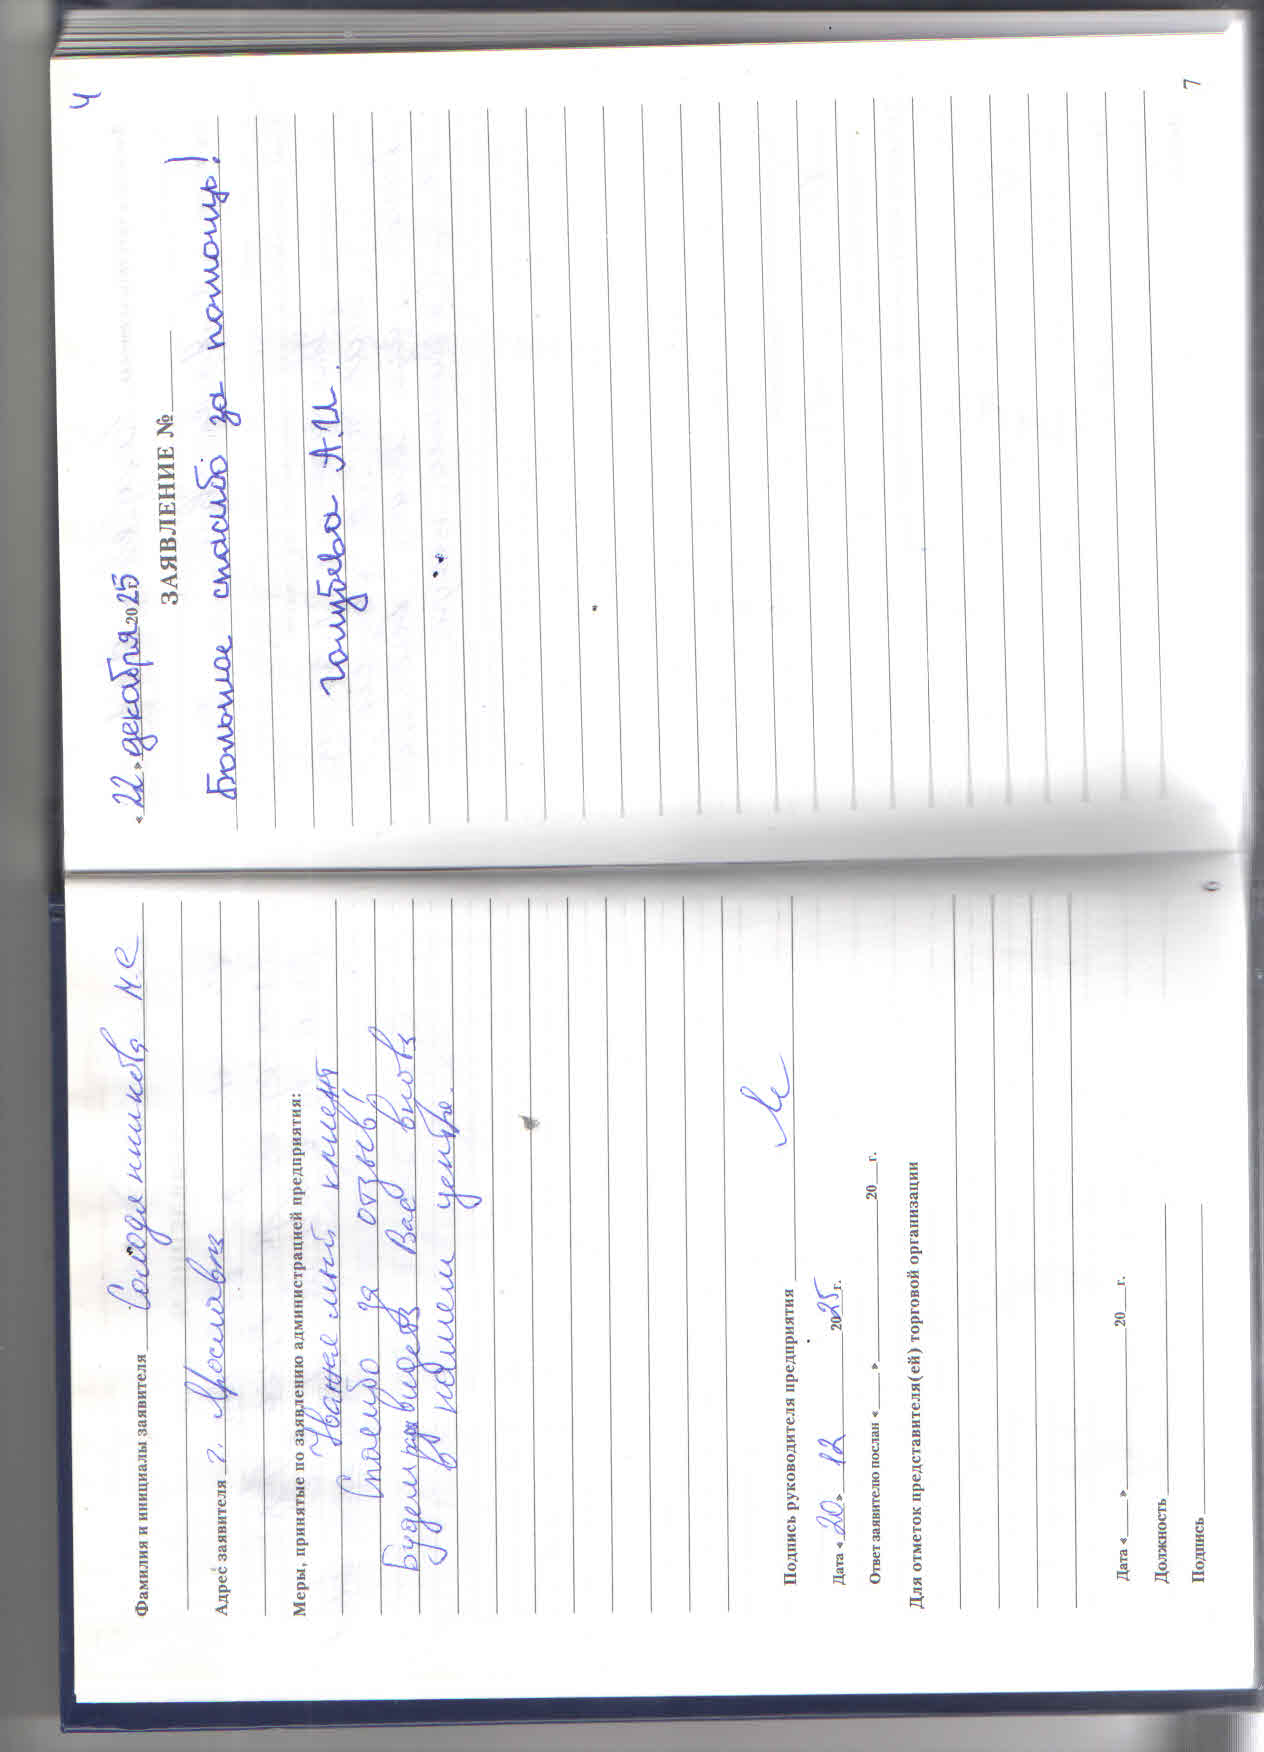 Фамилия и инициалы заявителя Солодянникова М.С
Адрес заявителя г. Ярославль
Меры, принятые по заявлению администрацией предприятия:
Уважаемый клиент
Спасибо за отзыв!
Будем видеть Вас вновь
в нашем центре.
Подпись руководителя предприятия
Дата « 20 » 12 2025 г.
Ответ заявителю послан « » 20 г.
Для отметок представителя(ей) торговой организации
Дата « » 20 г.
Должность
Подпись
6
4
« 22 » декабря 2025
ЗАЯВЛЕНИЕ №
Большое спасибо за помощь!
Голубева А.И.
7